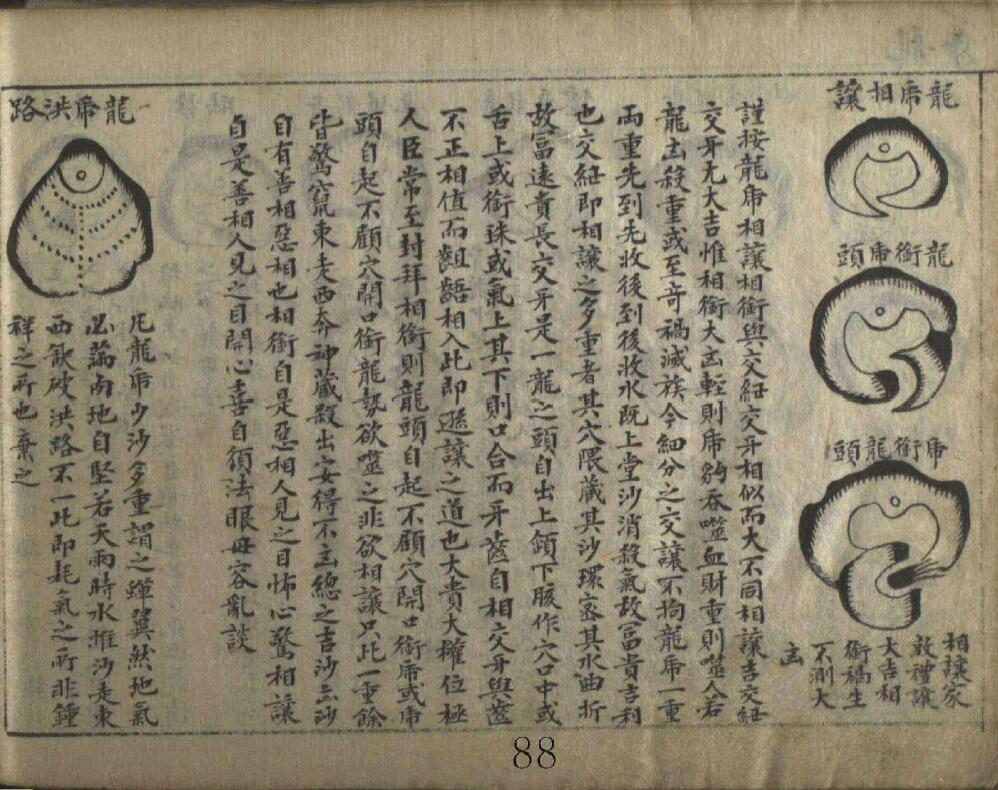 龍虎相讓
龍銜虎頭
虎銜龍頭
相讓家
敦禮讓
大吉相
銜禍生
不測大
㐫
謹按龍虎相讓相銜與交紐交牙相似而大不同相讓吉交紐
交牙尤大吉惟相銜大㐫輕則虎夠吞噬血財重則噬人若
龍㐫殺重或至奇禍滅族今細分之交讓不拘龍虎一重
兩重先到先收後到後收水既上堂沙消殺氣故富貴吉利
也交紐即相讓之多多重者其穴隈藏其沙環密其水曲折
故富遠貴長交牙是一龍之頭自出上頷下腋作穴口中或
舌上或銜珠或氣上其下則口合而牙齒自相交牙與齒
不正相值而齟齬相入此即遜讓之道也大貴大權位極
人臣常至封拜相銜則龍頭自起不顧穴開口銜虎或虎
頭自起不顧穴開口銜龍勢欲噬之非欲相讓只此一重餘
皆驚竄東走西奔神藏殺出安得不㐫總之吉沙㐫沙
自有善相惡相也相銜自是惡相人見之目怖心驚相讓
自是善相人見之目開心喜自領法眼毋容亂談
龍虎洪路
凡龍虎少沙多重謂之蟬翼然地氣
必薄南地自堅若天雨時水推沙走東
西欹破洪路不一此即耗氣之所非鍾
祥之所也棄之
88